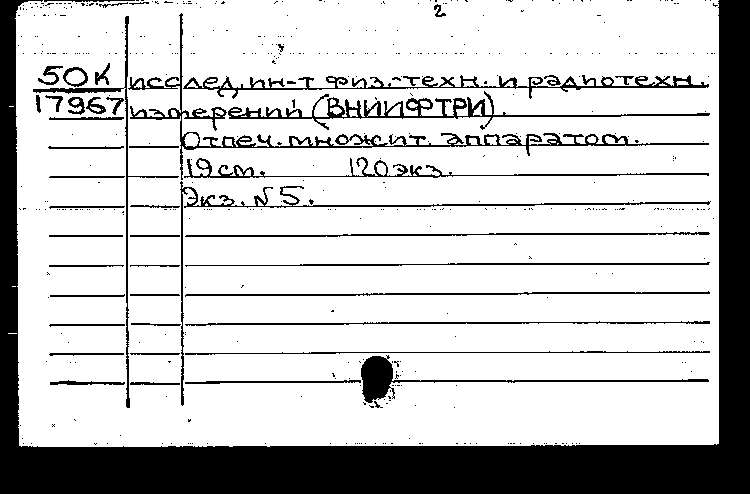 2
50К исслед. ин-т физ.-техн. и радиотехн.
17967 измерений (ВНИИФТРИ).
Отпеч. множит. аппаратом.
19 см. 120 экз.
Экз. № 5.